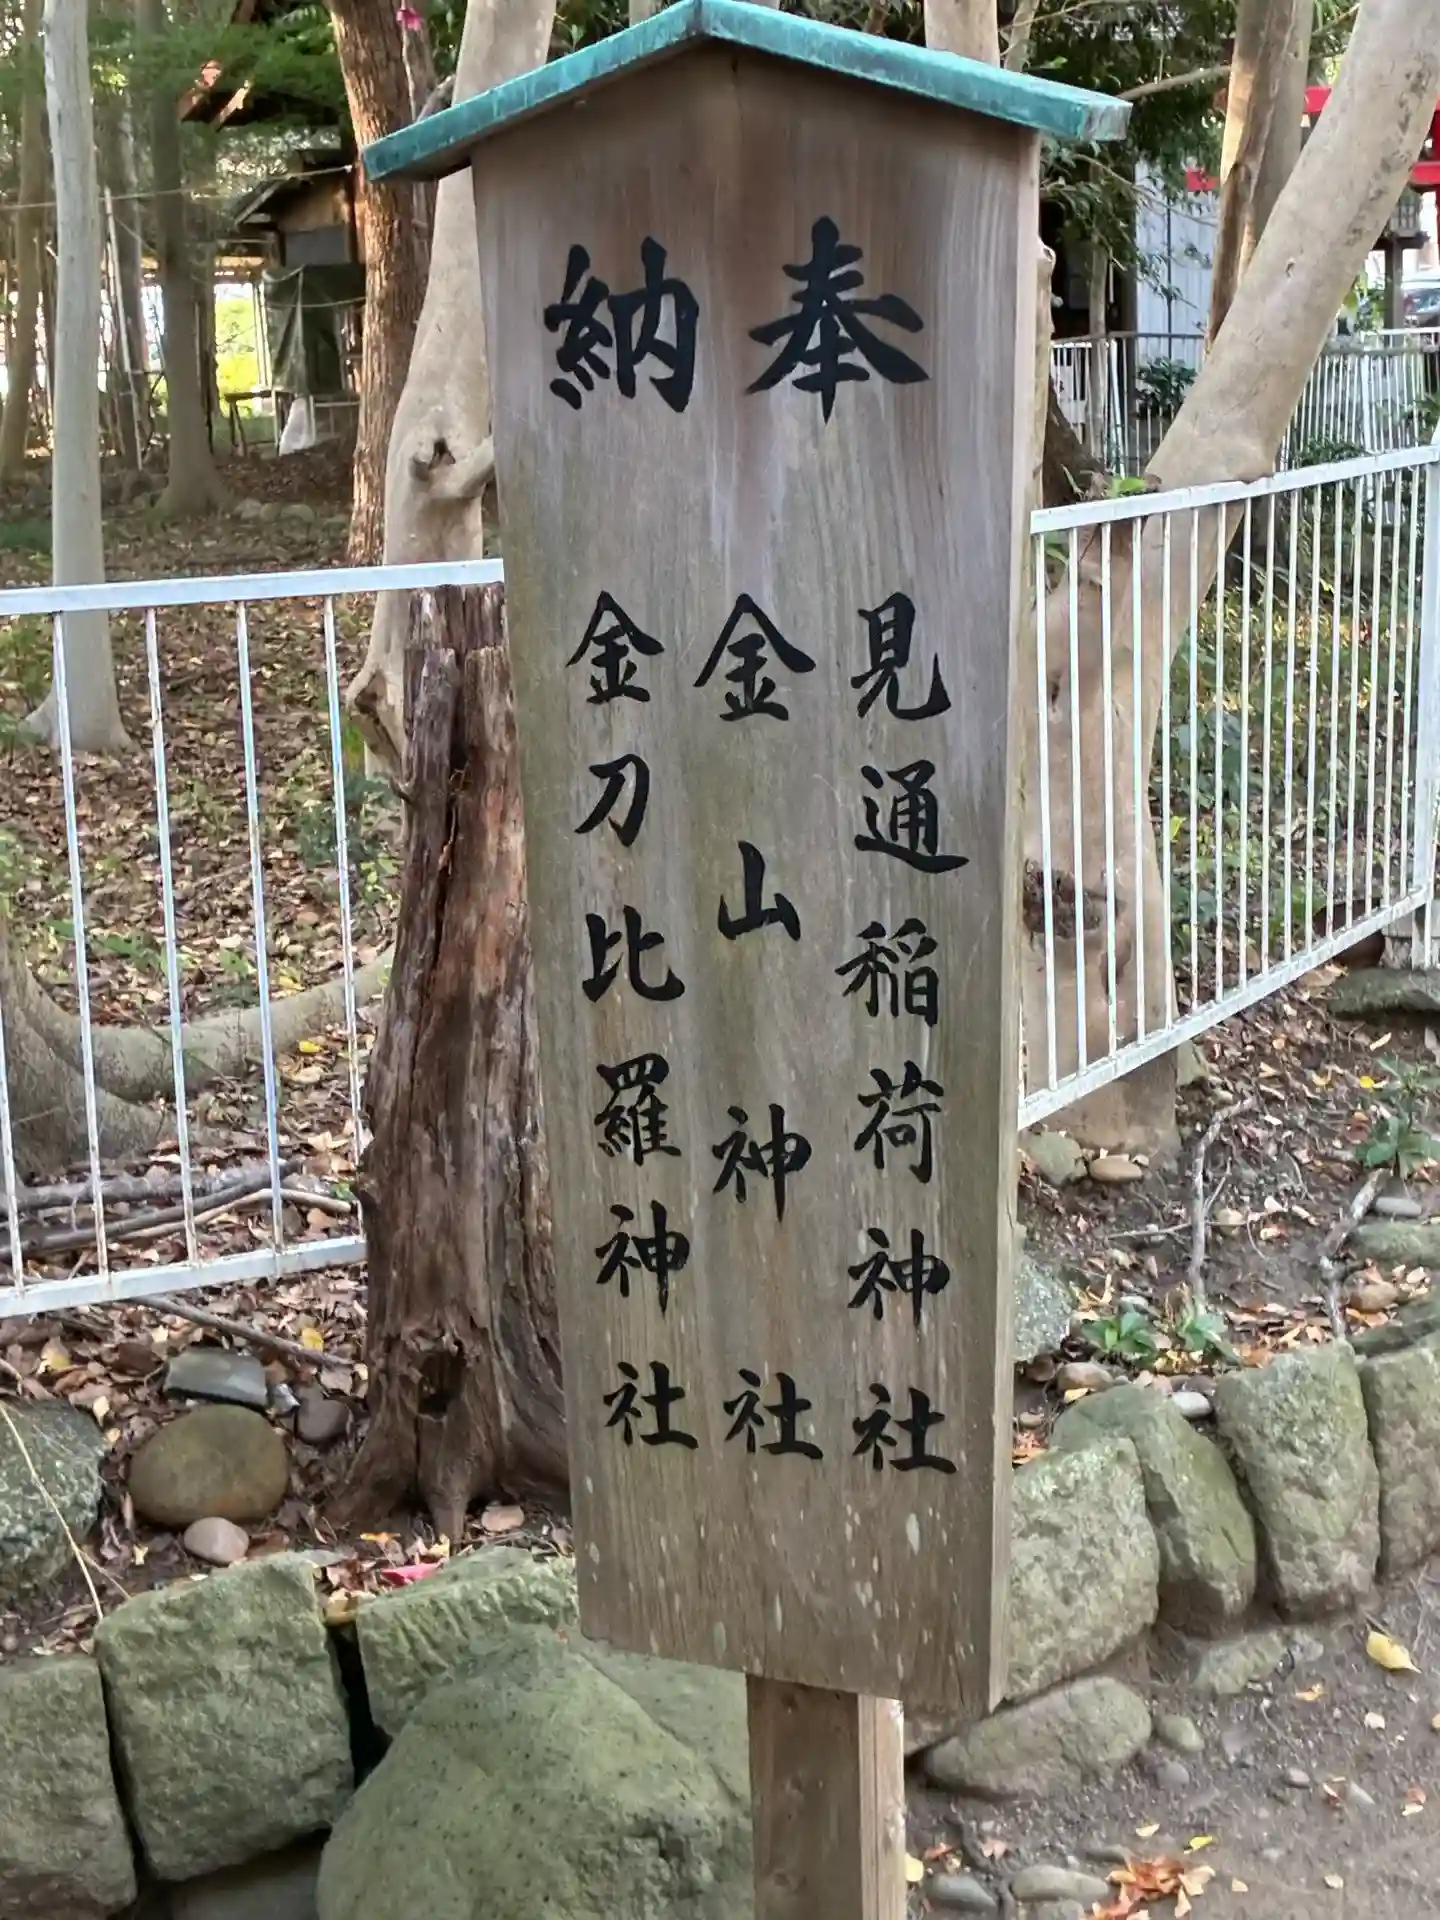 奉納
見通稲荷神社
金山神社
金刀比羅神社